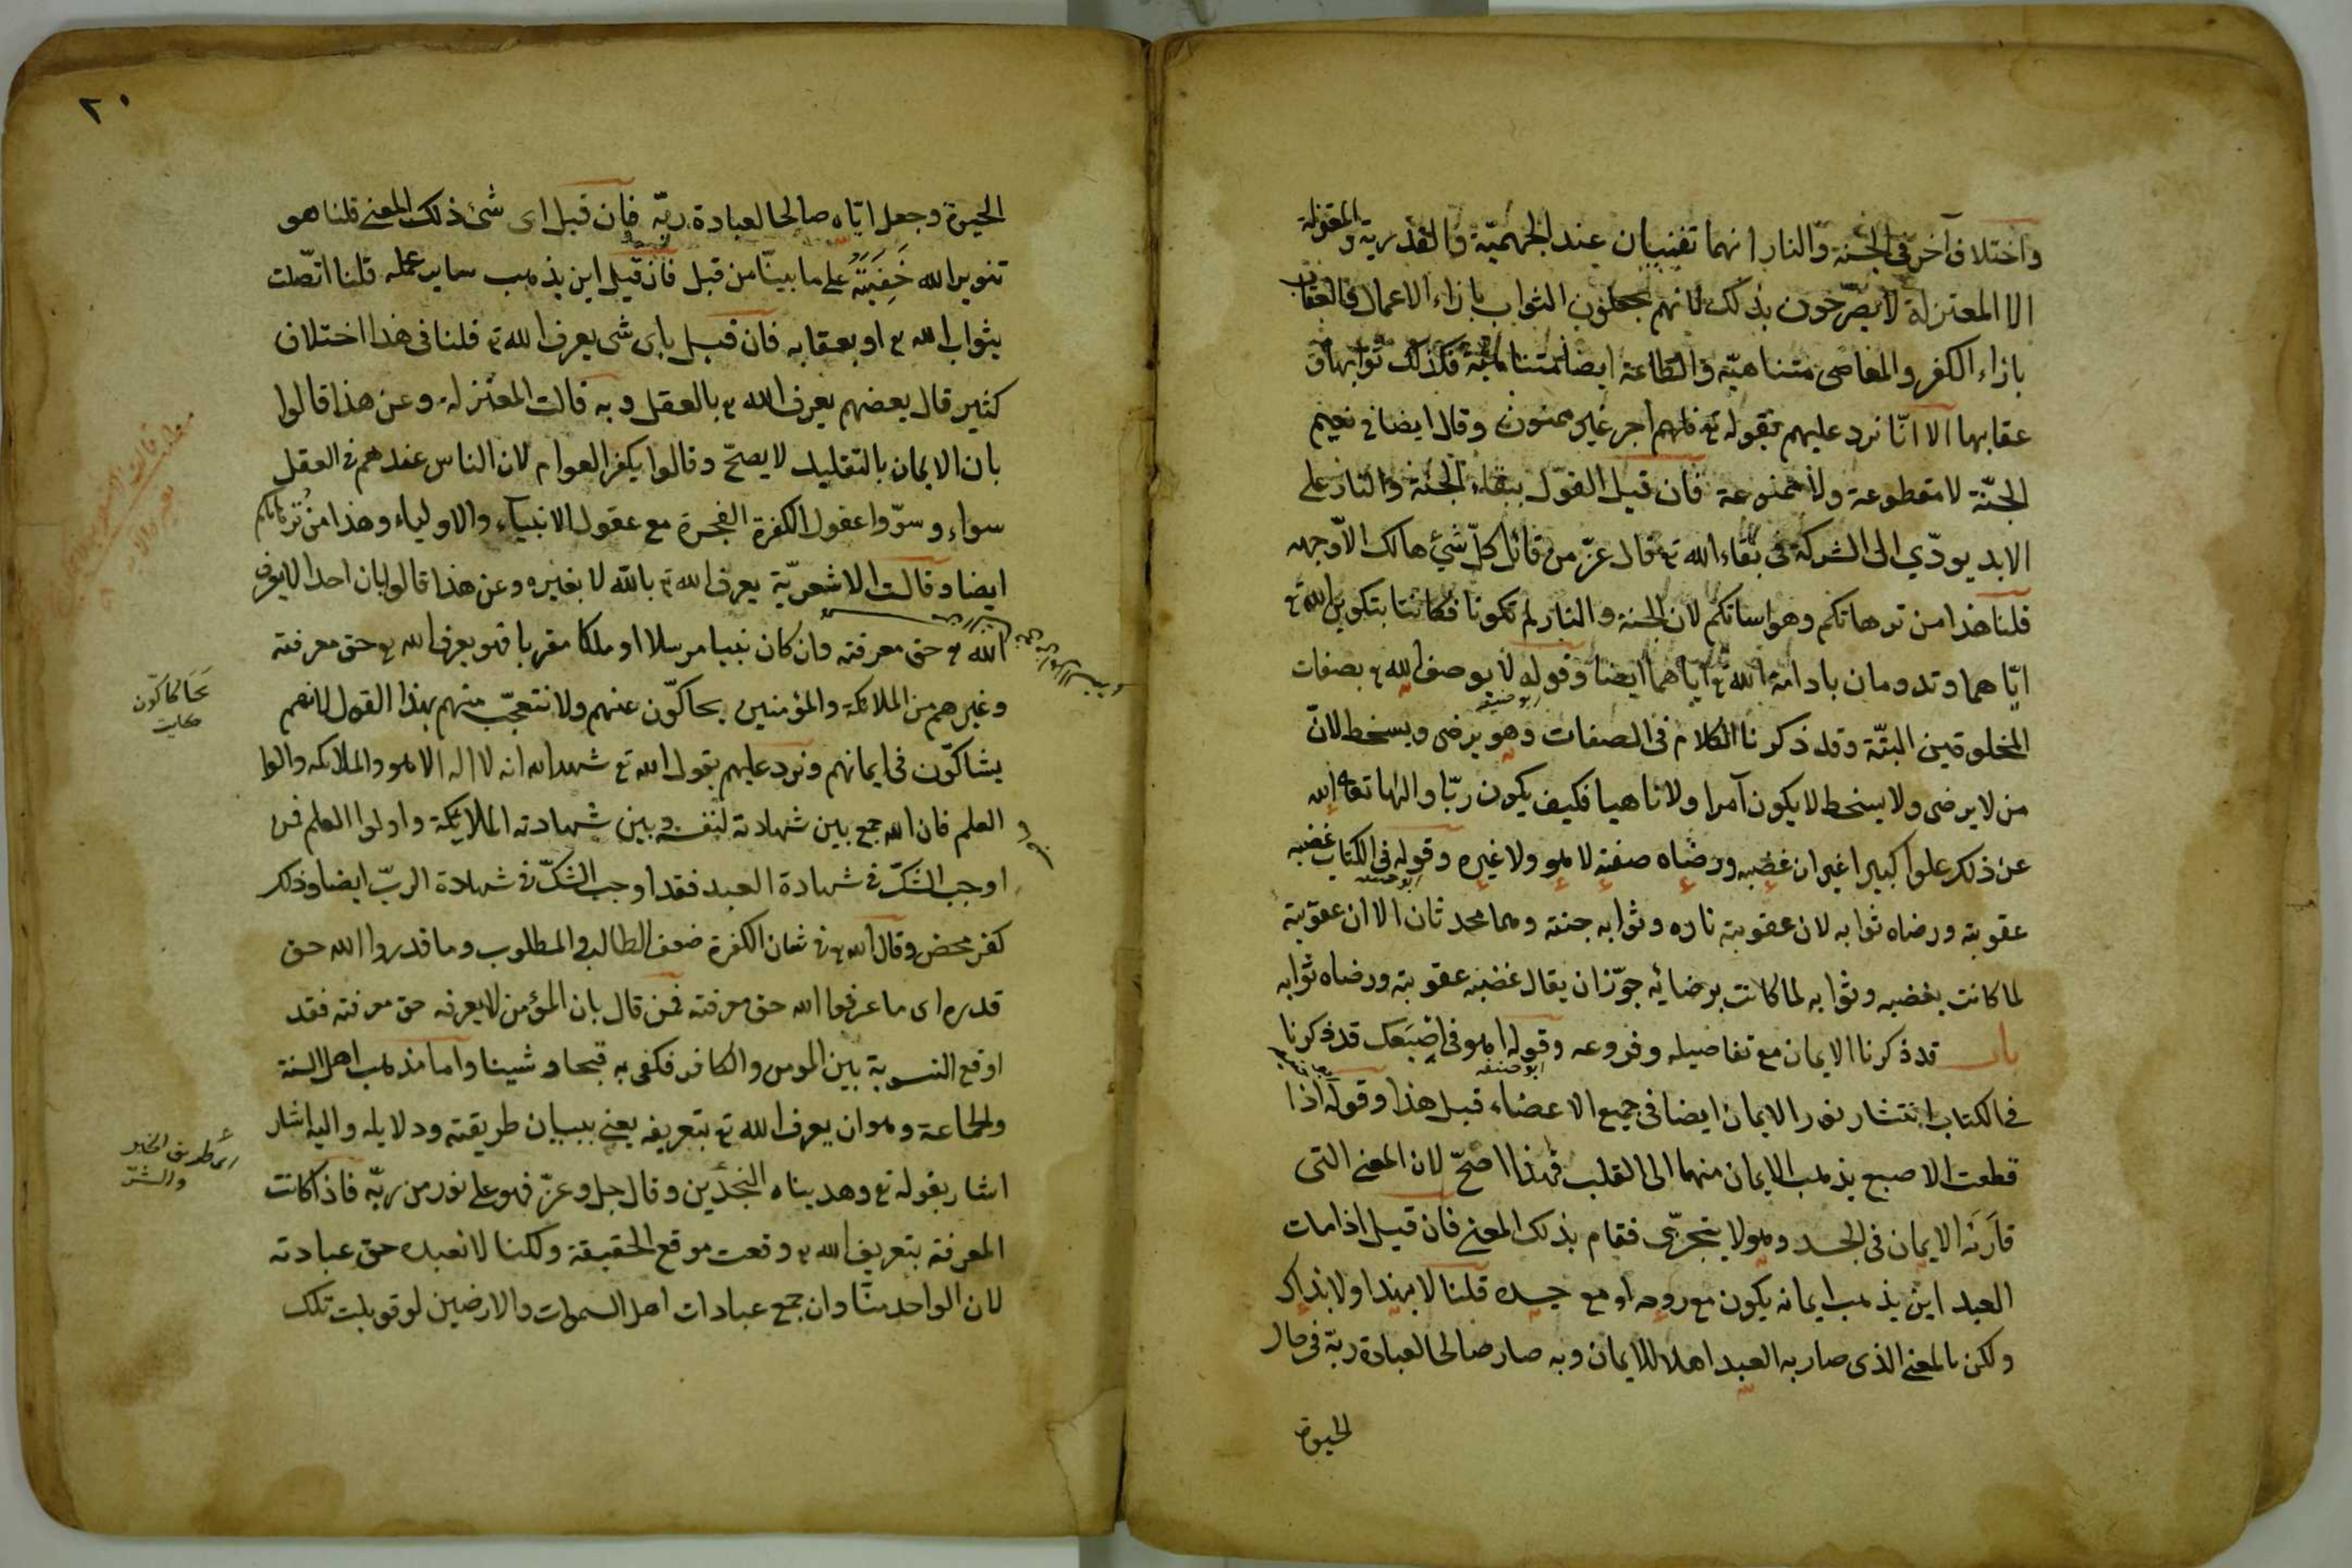 واختلاف آخر فى الجنة والنار انهما تفنيان عند الجهميّة والقدرية والمعتزلة
الا المعتزلة لا يصرّحون بذلك لانهم يجعلون الثواب بازاء الاعمال والعقاب
بازاء الكفر والمعاصى متناهيّة والطاعة ايضا متناهية فكذلك ثوابها و
عقابها الا انّا نرد عليهم بقوله تع فلهم اجر غير ممنون وقال ايضا فى نعيم
الجنّة لا مقطوعة ولا ممنوعة فان قيل القول ببقاء الجنة والنار على
الابد يودّي الى الشركة فى بقاء الله تع قال عزّ من قائل كلّ شيْ هالك الاّ وجهه
قلنا هذا من ترهاتكم وهواساتكم لان الجنة والنار لم تكونا فكانتا بتكوين الله تع
ايّاهما وتدومان بادامة الله تع ايّاهما ايضا وقوله لا يوصف الله تع بصفات
المخلوقين البتّة وقد ذكرنا الكلام فى الصفات وهو يرضى ويسخط لانّ
ابو حنيفه
من لا يرضى ولا يسخط لا يكون آمرا ولا ناهيا فكيف يكون ربّا والها تعالى الله
عن ذلك علوا كبيرا غير ان غضبه ورضاه صفته لا هو ولا غيره وقوله فى الكتاب غضبه
ابو حنيفه
عقوبته ورضاه ثوابه لان عقوبته ناره وثوابه جنته وهما محدثان الا ان عقوبته
لما كانت بغضبه وثوابه لما كانت برضائه جوّز ان يقال غضبه عقوبته ورضاه ثوابه
باب قد ذكرنا الايمان مع تفاصيله وفروعه وقوله اهو فى اصبَعك قد ذكرنا
ابو حنيفه
فى الكتاب انتشار نور الايمان ايضا فى جميع الاعضاء قبل هذا وقوله اذا
قطعت الاصبع يذهب الايمان منهما الى القلب فهذا اصحّ لان المعنى التى
قارَنَه الايمان فى الجسد وهو لا يتجزّى فقام بذلك المعنى فان قيل اذا مات
العبد اين يذهب ايمانه يكون مع روحه او مع جسده قلنا لا بهذا ولا بذاك
ولكن بالمعنى الذى صار به العبد اهلا للايمان وبه صار صالحا لعبادة ربّه فى حال
الحيوة
٢٠
الحيوة وجعل ايّاه صالحا لعبادة ربّه فان قيل اى شئ ذلك المعنى قلنا هو
تنوير الله خَفِيَتَهُ على ما بينّا من قبل فان قيل اين يذهب ساير عمله قلنا اتّصلت
بثواب الله تع او بعقابه فان قيل باى شى يعرف الله تع قلنا فى هذا اختلاف
كثير قال بعضهم يعرف الله تع بالعقل وبه قالت المعتزلة وعن هذا قالوا
بان الايمان بالتقليد لا يصحّ وقالوا يكفر العوام لان الناس عندهم فى العقل
سواء وسوّوا عقول الكفرة الفجرة مع عقول الانبياء والاولياء وهذا من تُرهاتكم
ايضا وقالت الاشعريّة يعرف الله تع بالله لا بغيره وعن هذا قالوا بان احدا لا يعرف
الله تع حق معرفته وان كان نبيا مرسلا او ملكا مقربا فهو يعرف الله تع حق معرفته
وغيرهم من الملائكة والمؤمنين يحاكّون عنهم ولا نتعجّب منهم بهذا القول لانهم
يَحَاكاكّون
يشاكّون فى ايمانهم ونرد عليهم بقول الله تع شهد الله انه لا اله الا هو والملائكه واولوا
العلم فان الله جمع بين شهادته لنفسه وبين شهادته الملائكة واولوا العلم فمن
اوجب الشكّ فى شهادة العبد فقد اوجب الشكّ فى شهادة الربّ ايضا وذلك
كفر محض وقال الله تع فى شان الكفرة ضعف الطالب والمطلوب وما قدروا الله حق
قدره اى ما عرفوا الله حق معرفته فمن قال بان المؤمن لا يعرفه حق معرفته فقد
اوقع التسوية بين المومن والكافر فكفى به قبحا وشينا واما مذهب اهل السنة
والجماعة وهو ان يعرف الله تع بتعريفه يعنى ببيان طريقته ودلايله واليه اشار
اى طريق الخير والشرّ
اشار بقوله تع وهديناه النجدين وقال جل وعزّ فهو على نور من ربّه فاذا كانت
المعرفة بتعريف الله تع وقعت موقع الحقيقة ولكنا لا نعبده حق عبادته
لان الواحد منّا وان جمع عبادات اهل السموات والارضين لو قوبلت تلك